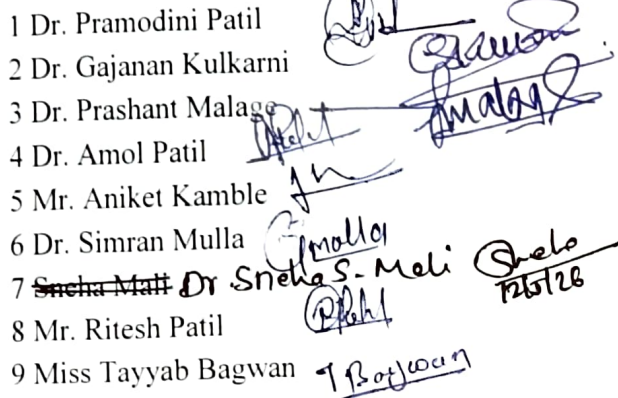 1 Dr. Pramodini Patil
2 Dr. Gajanan Kulkarni
3 Dr. Prashant Malage Pmalage
4 Dr. Amol Patil
5 Mr. Aniket Kamble
6 Dr. Simran Mulla Smulla
7 Sneha Mali Dr Sneha S. Mali Sneha
12/5/26
8 Mr. Ritesh Patil
9 Miss Tayyab Bagwan T Bagwan